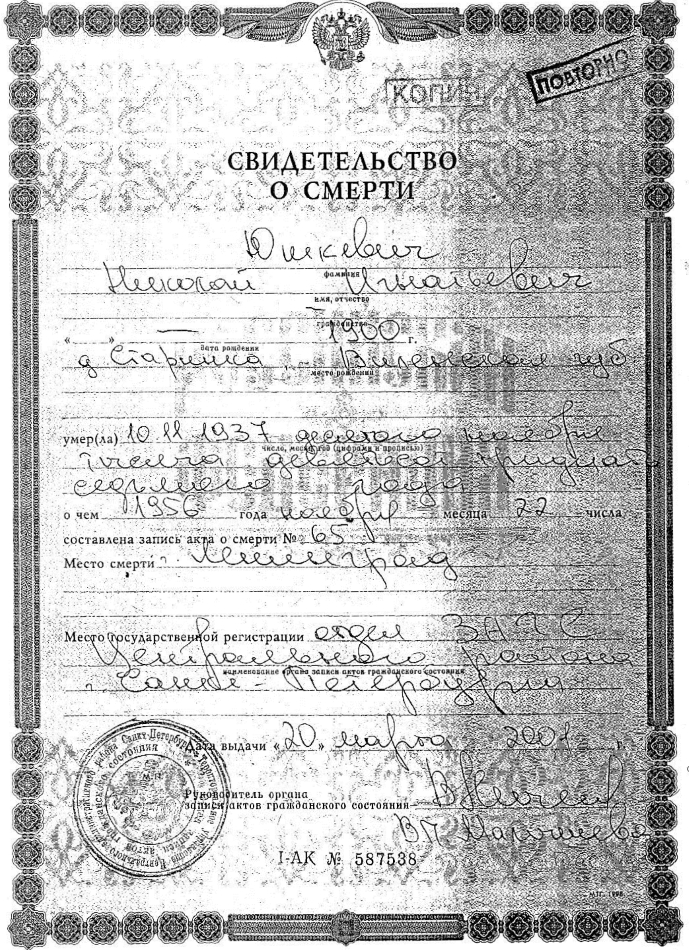 КОПИЯ
ПОВТОРНО
СВИДЕТЕЛЬСТВО
О СМЕРТИ
Юшкевич
фамилия
Николай Игнатьевич
имя, отчество
—
гражданство
« — » 1900 г.
дата рождения
д. Старинка, Виленская губ.
место рождения
умер(ла) 10.11.1937 десятого ноября
число, месяц, год (цифрами и прописью)
тысяча девятьсот тридцать
седьмого года
о чем 1956 года ноября месяца 22 числа
составлена запись акта о смерти № 65
Место смерти г. Ленинград
Место государственной регистрации отдел ЗАГС
Центрального района
наименование органа записи актов гражданского состояния
г. Санкт-Петербурга
Дата выдачи «20» марта 2001 г.
Руководитель органа
записи актов гражданского состояния
I-АК № 587538